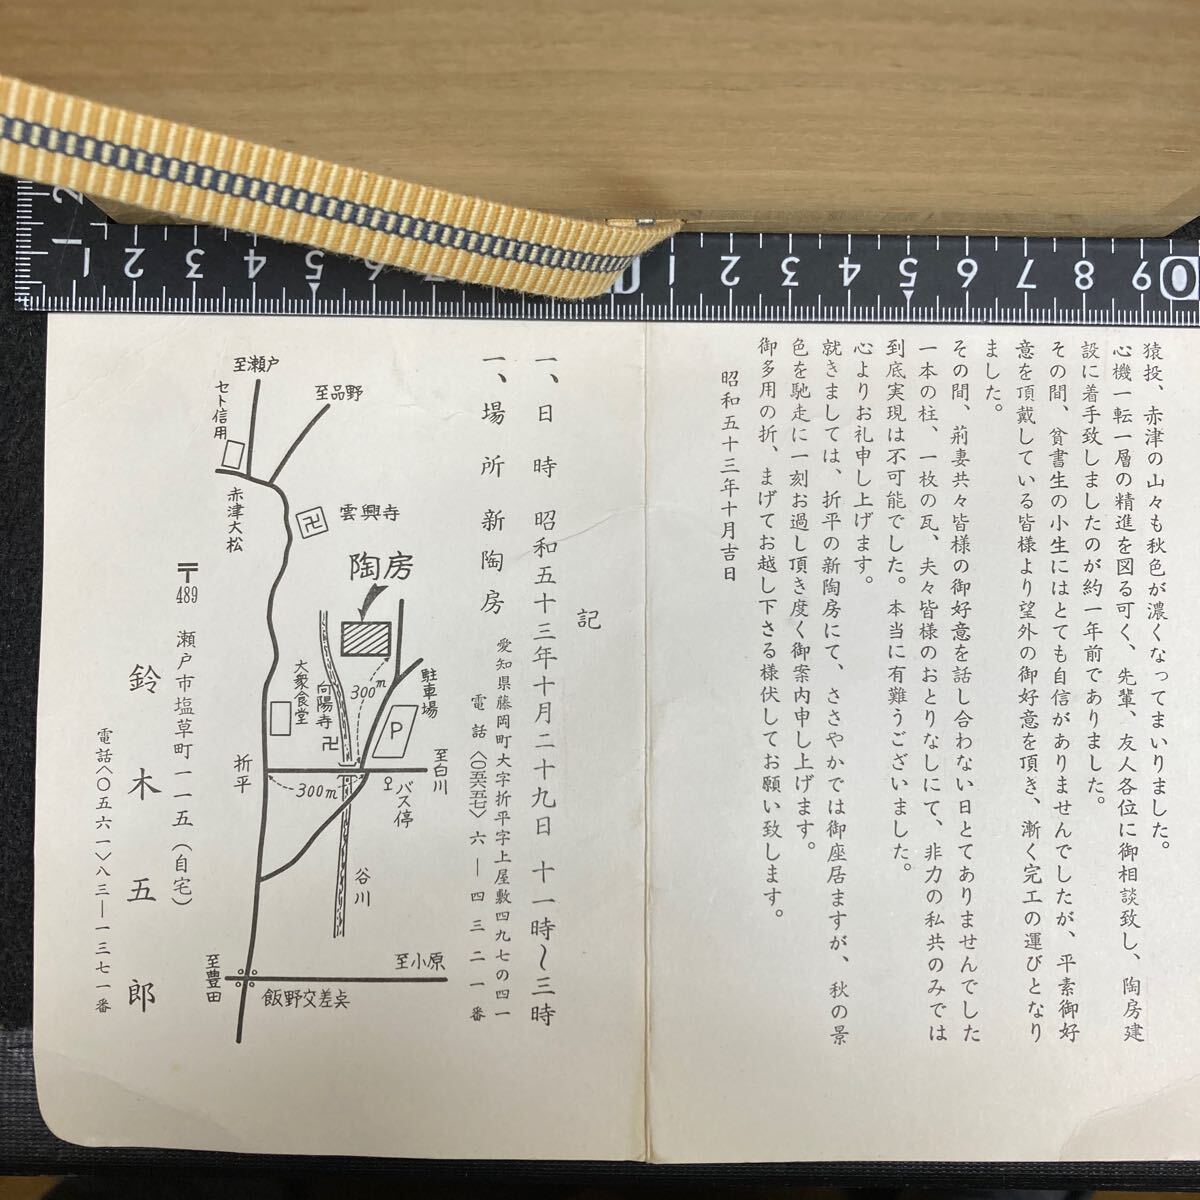 猿投、赤津の山々も秋色が濃くなってまいりました。
心機一転一層の精進を図る可く、先輩、友人各位に御相談致し、陶房建
設に着手致しましたのが約一年前でありました。
その間、貧書生の小生にはとても自信がありませんでしたが、平素御好
意を頂戴している皆様より望外の御好意を頂き、漸く完工の運びとなり
ました。
その間、荊妻共々皆様の御好意を話し合わない日とてありませんでした
一本の柱、一枚の瓦、夫々皆様のおとりなしにて、非力の私共のみでは
到底実現は不可能でした。本当に有難うございました。
心よりお礼申し上げます。
就きましては、折平の新陶房にて、ささやかでは御座居ますが、秋の景
色を馳走に一刻お過し頂き度く御案内申し上げます。
御多用の折、まげてお越し下さる様伏してお願い致します。
昭和五十三年十月吉日
記
一、日時 昭和五十三年十月二十九日 十一時〜三時
一、場所 新陶房 愛知県藤岡町大字折平字上屋敷四九七の四一
電話〈〇五六五七〉六―四三二一番
至瀬戸
至品野
セト信用
赤津大松
卍
雲興寺
陶房
300m
駐車場
P
大衆食堂
向陽寺
卍
至白川
バス停
折平
300m
谷川
至小原
至豊田
飯野交差点
〒489 瀬戸市塩草町一一五（自宅）
鈴木五郎
電話〈〇五六一〉八三―一三七一番
1 2 3 4 5 6 7
1 2 3 4 5 6 7 8 9
2